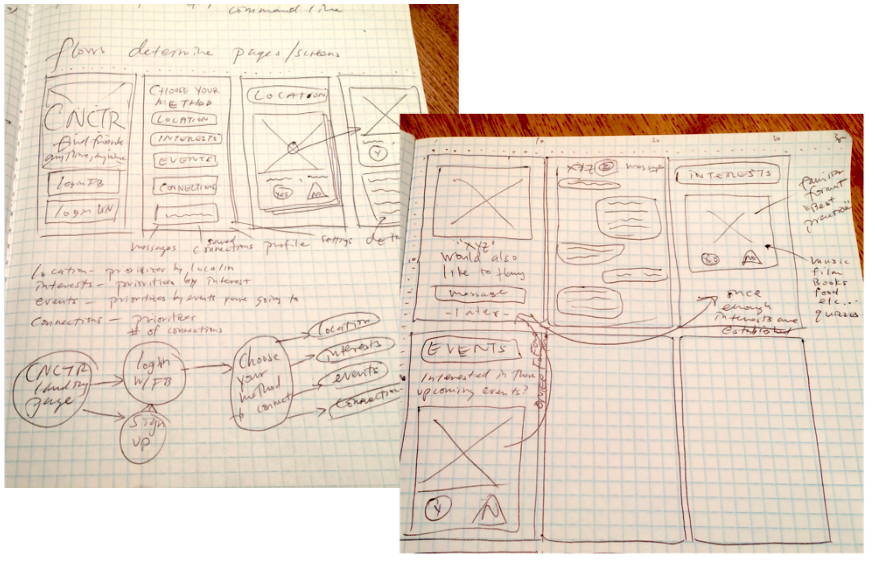 command line
flows determine pages/screens
CNCTR
find friends
anytime, anywhere
login FB
CHOOSE YOUR
METHOD
LOCATION
INTERESTS
EVENTS
CONNECTING
LOCATION
yes
no
Y
messages saved connections profile settings
Location - prioritizes by location
interests - priorities by interest
events - priorities by events you're going to
Connections - prioritizes
# of connections
CNCTR
landing
page
login
w/FB
sign
up
Choose
your
method
to connect
location
interests
events
Connection
"XYZ"
would also
like to hang
message
- later -
XYZ
message
INTERESTS
familiar
format
"Best
practice"
music
film
Books
food
etc...
quizzes
once
enough
interests are
established
EVENTS
Interested in these
upcoming events?
Y
N